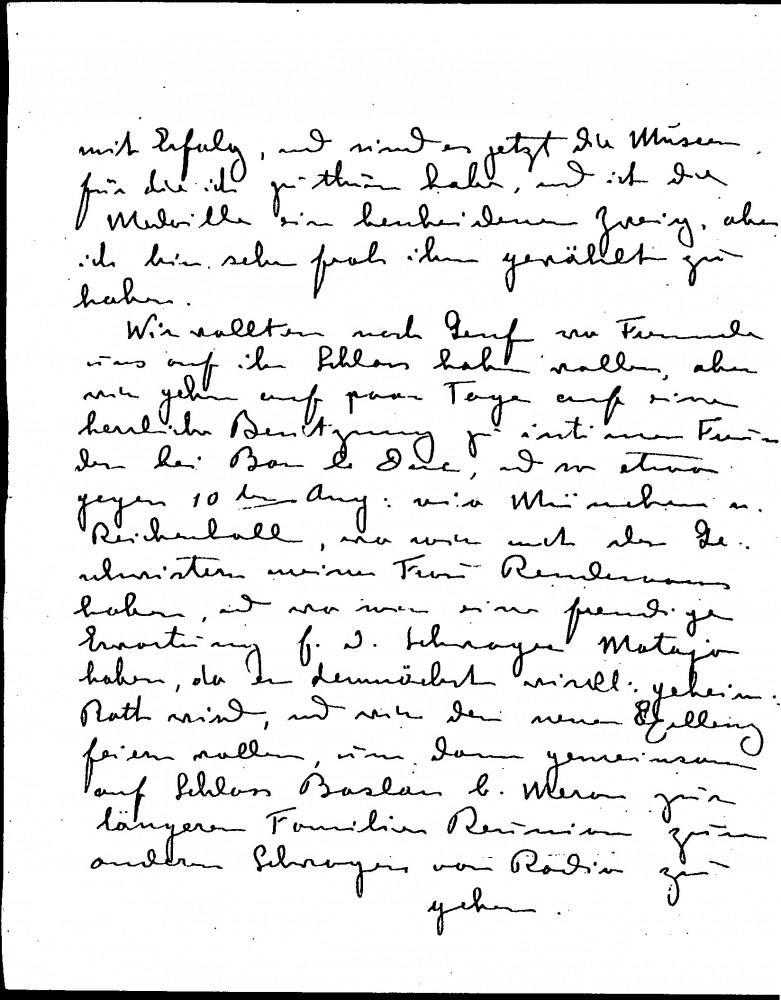 mit Erfolg, und sind es jetzt die Museen,
für die ich zu thun habe, und ist die
Medaille ein bescheidener Zweig, aber
ich bin sehr froh ihn gewählt zu
haben.
Wir sollten nach Genf wo Freunde
uns auf ihr Schloss haben wollen, aber
wir gehen auf paar Tage auf eine
herrliche Besitzung zu intimen Freun
den bei Bar le Duc, und so etwa
gegen 10 ten Aug: via München u.
Reichenhall, wo wir mit den Ge-
schwistern meiner Frau Rendezvous
haben, und wo wir eine freudige
Erwartung f. d. Schwager Mataja
haben, da er demnächst wirkl: geheim:
Rath wird, und wir den neuen Exzellenz
feiern wollen, um dann gemeinsam
auf Schloss Baslan b. Meran zur
längeren Familien Reunion zum
anderen Schwager von Radio zu
gehen.